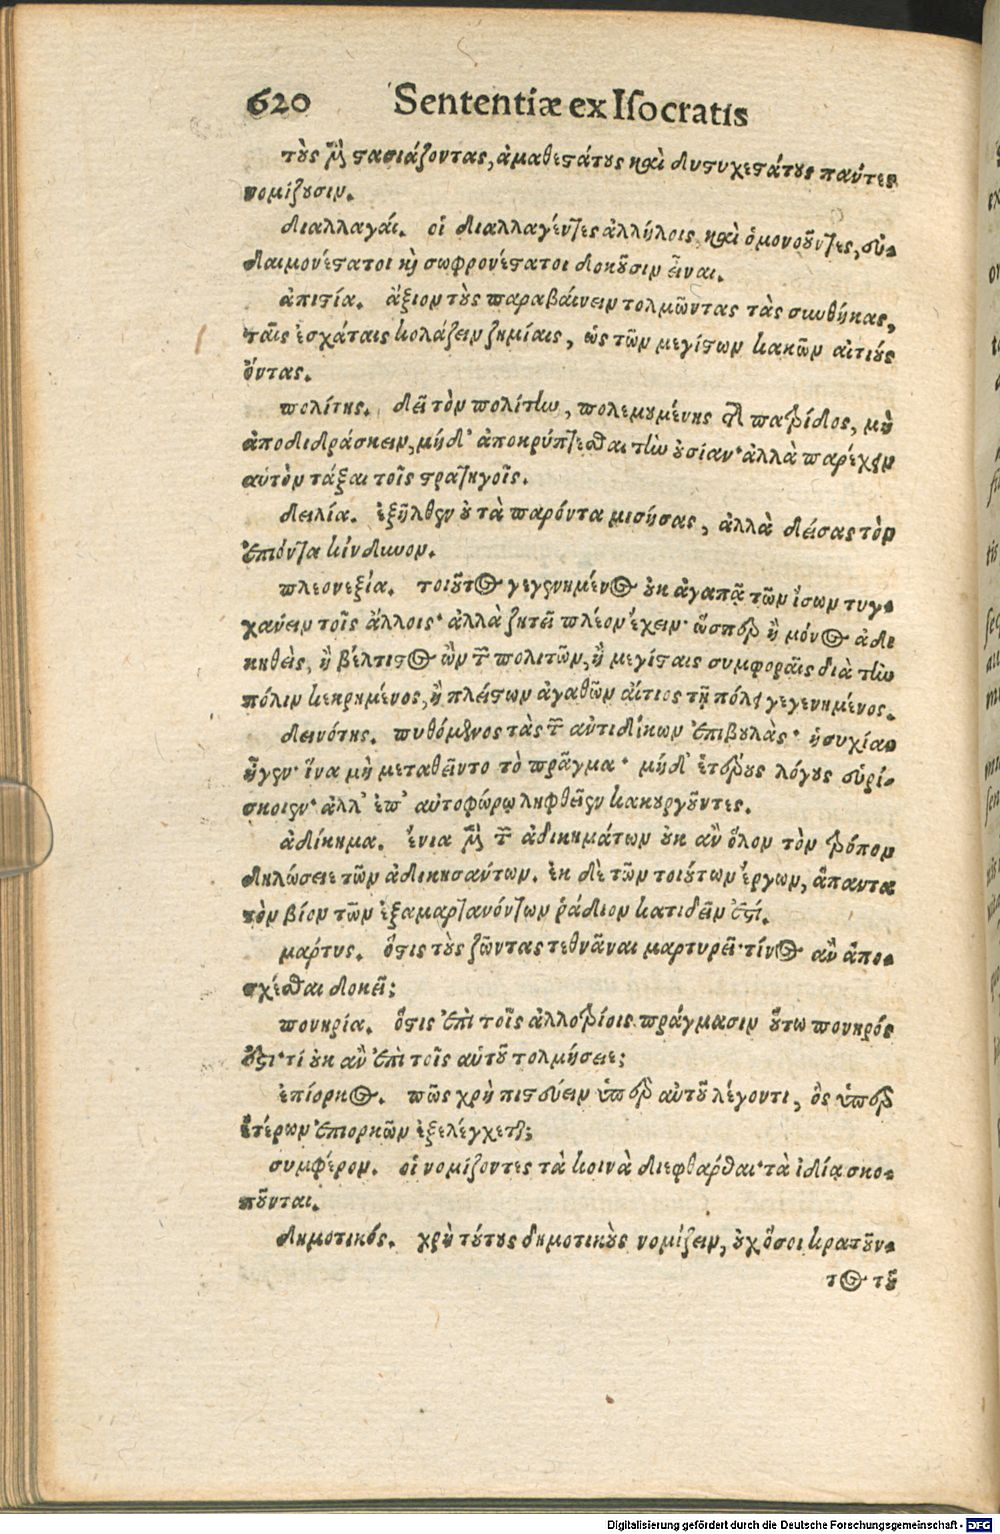 620 Sententiæ ex Iſocratis
τοὺς μὲν στασιάζοντας, ἀμαθεστάτους καὶ δυστυχεστάτους πάντες
νομίζουσιν.
διαλλαγαί. οἱ διαλλαγέντες ἀλλήλοις καὶ ὁμονοοῦντες, εὐ-
δαιμονέστατοι καὶ σωφρονέστατοι δοκοῦσιν εἶναι.
ἀπιστία. ἄξιον τοὺς παραβαίνειν τολμῶντας τὰς συνθήκας,
ταῖς ἐσχάταις κολάζειν ζημίαις, ὡς τῶν μεγίστων κακῶν αἰτίους
ὄντας.
πολίτης. δεῖ τὸν πολίτην, πολεμουμένης τῆς πατρίδος, μὴ
ἀποδιδράσκειν, μήδ' ἀποκρύπτεσθαι τὴν οὐσίαν· ἀλλὰ παρέχειν
αὑτὸν τάξαι τοῖς στρατηγοῖς.
δειλία. ἐξῆλθεν οὐ τὰ παρόντα μισήσας, ἀλλὰ δείσας τὸν
ἐπιόντα κίνδυνον.
πλεονεξία. τοιοῦτος γεγενημένος οὐκ ἀγαπᾷ τῶν ἴσων τυγ-
χάνειν τοῖς ἄλλοις· ἀλλὰ ζητεῖ πλέον ἔχειν· ὥσπερ ἢ μόνος ἀδι
κηθεὶς, ἢ βέλτιστος ὢν τῶν πολιτῶν, ἢ μεγίσταις συμφοραῖς διὰ τὴν
πόλιν κεκρημένος, ἢ πλείστων ἀγαθῶν αἴτιος τῇ πόλει γεγενημένος.
δεινότης. πυθόμενος τὰς τῶν ἀντιδίκων ἐπιβουλὰς· ἡσυχίαν
ἦγεν· ἵνα μὴ μεταθεῖντο τὸ πρᾶγμα· μήδ' ἑτέρους λόγους εὑρί-
σκοιεν· ἀλλ' ἐπ' αὐτοφώρῳ ληφθεῖεν κακουργοῦντες.
ἀδίκημα. ἔνια μὲν τῶν ἀδικημάτων οὐκ ἂν ὅλον τὸν τρόπον
δηλώσειε τῶν ἀδικησάντων. ἐκ δὲ τῶν τοιούτων ἔργων, ἅπαντα
τὸν βίον τῶν ἐξαμαρτανόντων ῥάδιον κατιδεῖν ἐστί.
μάρτυς. ὅστις τοὺς ζῶντας τεθνᾶναι μαρτυρεῖ· τίνος ἂν ἀπο-
σχέσθαι δοκεῖ;
πονηρία. ὅστις ἐπὶ τοῖς ἀλλοτρίοις πράγμασιν οὕτω πονηρός
ἐστι· τί οὐκ ἂν ἐπὶ τοῖς αὑτοῦ τολμήσειε;
ἐπίορκος. πῶς χρὴ πιστεύειν ὑπὲρ αὑτοῦ λέγοντι, ὃς ὑπὲρ
ἑτέρων ἐπιορκῶν ἐξελέγχεται;
συμφέρον. οἱ νομίζοντες τὰ κοινὰ διεφθάρθαι· τὰ ἰδίᾳ σκο-
ποῦνται.
δημοτικός. χρὴ τούτους δημοτικοὺς νομίζειν, οὐχ ὅσοι κρατοῦν-
τος τοῦ
Digitalisierung gefördert durch die Deutsche Forschungsgemeinschaft - DFG